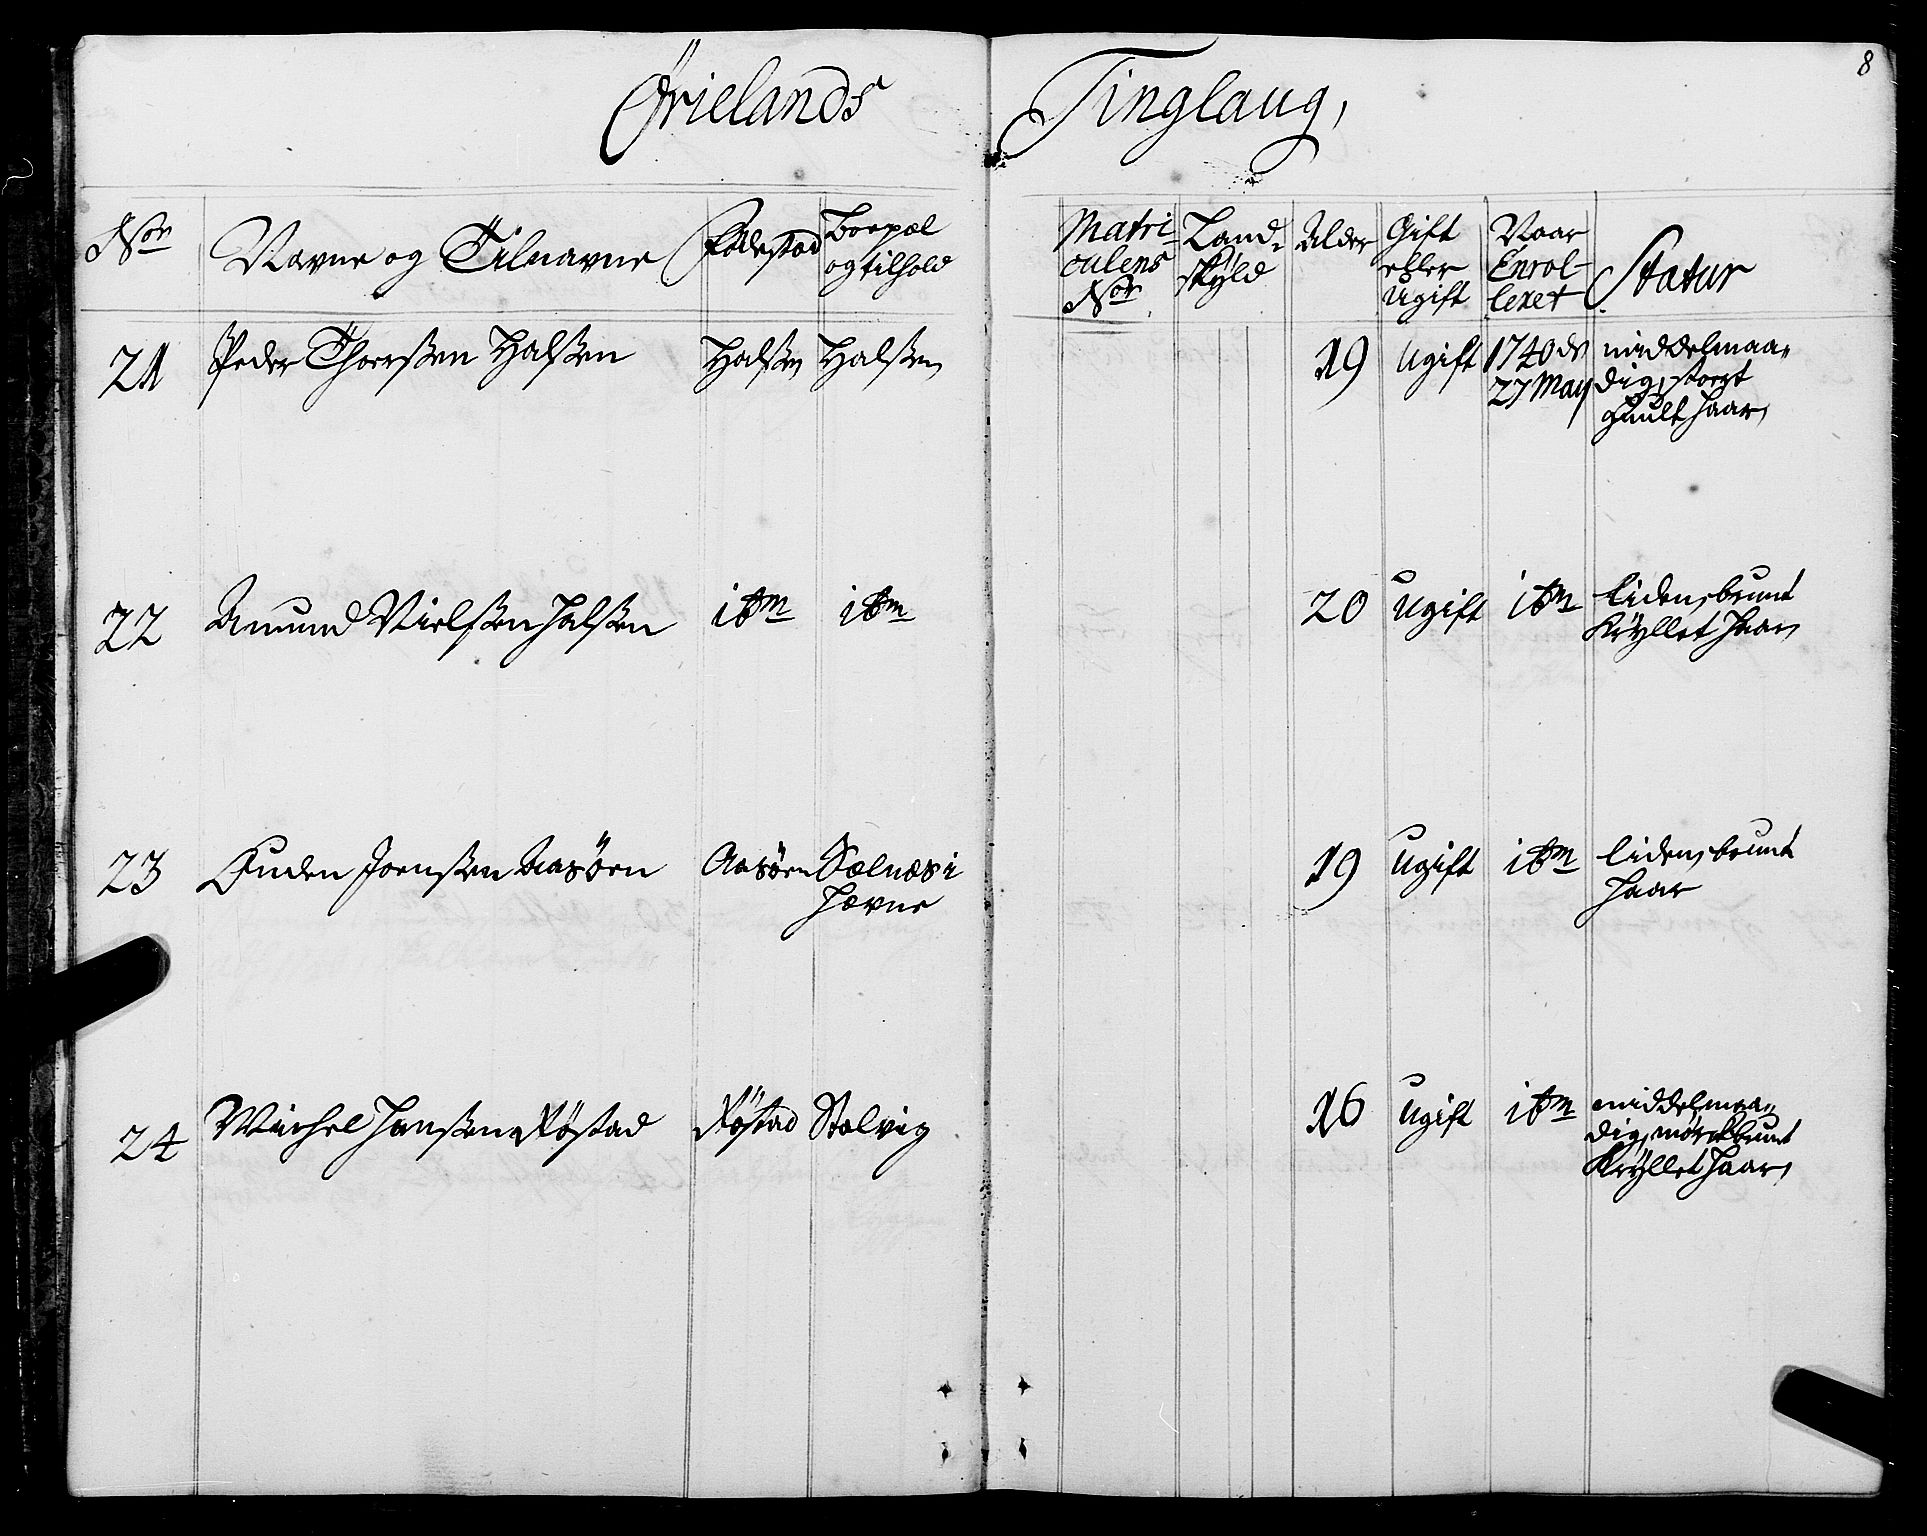 8
Ørielands Tinglaug,
No: Navne og Tilnavne Födestad Boepæl og tilhold Matriculens No: Landskyld Alder Gift eller Ugift Naar Enrolleret Statur
21 Peder Thoersßen Halsßen Halsßen Halsßen 19 Ugift 1740 ds middelmaa-
27 May dig, stort
guult haar,
22 Amund Nielsßen Halsßen itm itm 20 Ugift itm liden, brunt
Krÿllet haar,
23 Ouden Joensßen Aasörn Aasörn Sælnæs i 19 Ugift itm liden, brunt
Hævne haar
24 Michel Hansßen Röstad Röstad Stalvig 16 Ugift itm middelmaa-
dig, mörckbrunt
Krÿllet haar,